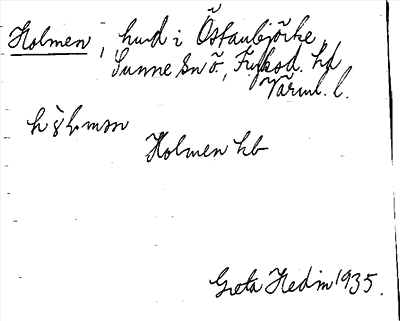 Holmen, hmd i Östanbjörke,
Sunne sn ö., Fryksd. hd
Värml. l.
Holmen kb
Greta Hedin 1935.